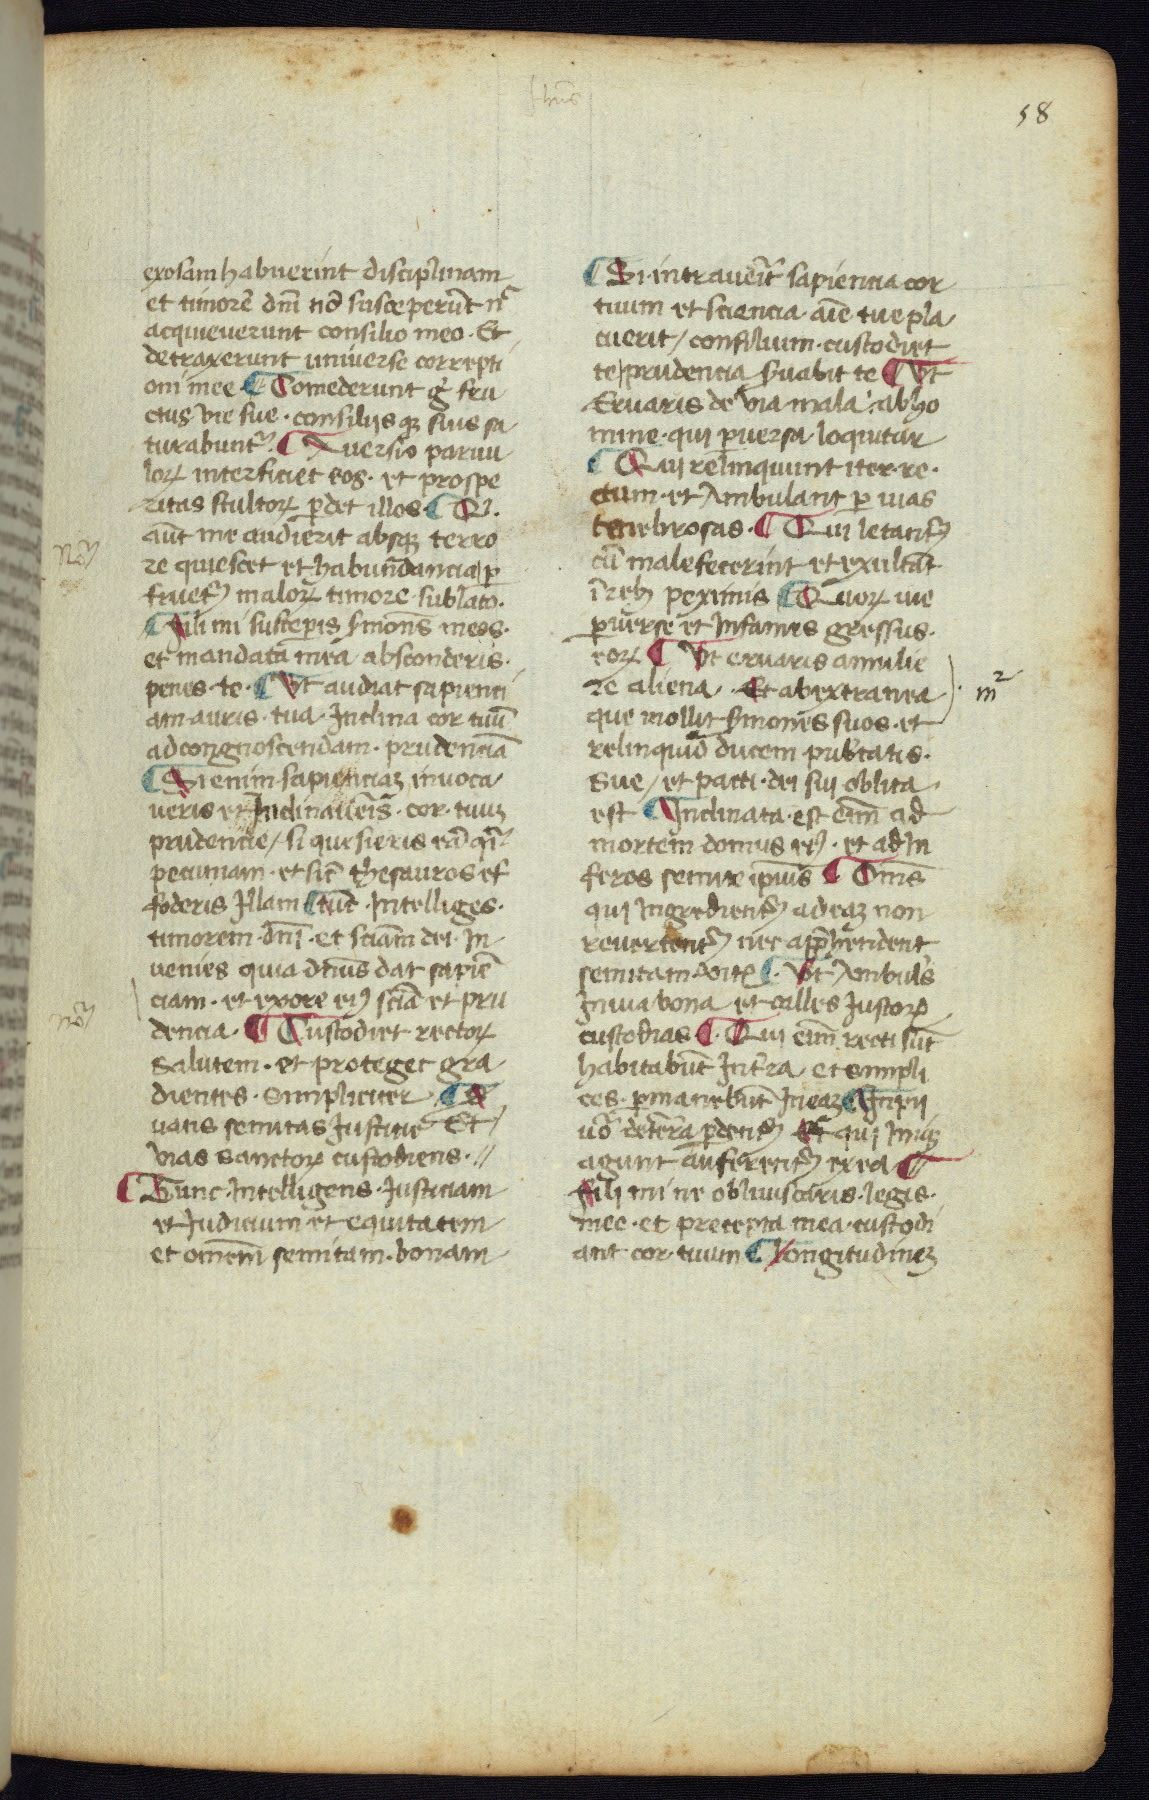 58
exosam habuerint disciplinam
et timorē dm̄ nō susceperūt n̄
acquieverunt consilio meo · Et
detraxerunt universe correpti
oni mee ¶ Comederunt g̊ fru
ctus vie sue · consiliisqꝫ suis sa
turabuntᷣ ¶ Aversio parvu
loꝝ interficiet eos · et prospe
ritas stultoꝝ ꝑdet illos ¶ Qi
aut̄ me audierit absqꝫ terro
re quiescet et habundancia ꝑ
fruetᷣ maloꝝ timore sublato ·
¶ Fili mi susceperis smones meos ·
et mandata mea absconderis ·
penes · te · ¶ Vt audiat sapienti
am auris · tua · Inclina cor tuū
ad congnoscendam · prudenciā
¶ Si enim sapienciaꝫ invoca
veris et Inclinaveris · cor · tuuꝫ
prudencie / si quesieris eā qi
pecuniam · et sic̄ thesauros ef
foderis Illam ¶ tūc · Intelliges ·
timorem · dn̄i · et sciām dei · In
venies quia dn̄us dat sapiē
ciam · et ex ore eiꝰ sciā et pru
dencia · ¶ Custodiet rectoꝝ
Salutem · et proteget gra
dientes · Simpliciter ¶ S
vans semitas Justicie Et
vias sanctoꝝ custodiens · //
¶ Tunc · Intelligens · Justiciam
et Judicium et equitatem
et omēm semitam · bonam
¶ Si · intraverit̄ sapiencia cor
tuum et sciencia · aīe tue pla
cuerit / consilium · custodiet
te / prudencia s̄vabit te ¶ Vt
Eruaris de via mala · ab ho
mine · qui ꝑversa loquitur
¶ Qui relinquunt iter · re ·
ctum · et Ambulant ꝑ vias
tenebrosas · ¶ Qui letantᷣ
cū malefecerint et exultāt
ī rebꝫ pexīmis ¶ Quoꝝ vie
ꝑverse et Infames gressus ·
eoꝝ ¶ Vt eruaris a mulie
re aliena · Et ab extranea
m²
que mollit smones suos · et
relinquid ducem pub̄tatis ·
Sue / et pacti · dei sui oblita
est ¶ Inclinata · est eīm ad
mortem domus eiꝰ · et ad In
feros semite ipius ¶ Om̄s
qui Ingredientᷣ ad eaꝫ non
revertentᷣ nec app̄hendent
semitam · vite ¶ · Vt Ambul̄s
In via bona et calles Justoꝝ
custodias ¶ · Qui eīm recti sūt
habitabūt In t̄ra et simpli
ces · ꝑmanebūt In eaꝫ ¶ Inpii
vō de t̄ra ꝑdentᷣ Et qui Iniqꝫ
agunt auferentᷣ ex ea ¶
Fili mi ne obliviscaris · legis ·
mee · et precepta mea · custodi
ant cor · tuum ¶ Longitudineꝫ